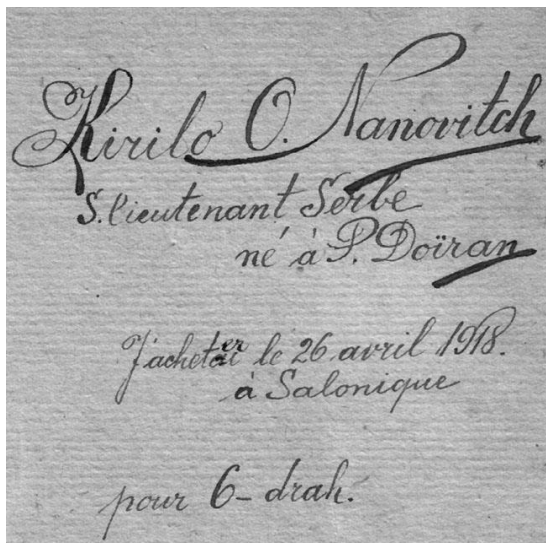 Kirilo O. Nanovitch
S. lieutenant Serbe
né à P. Doïran
J'acheter le 26 avril 1918.
à Salonique
pour 6 – drah.